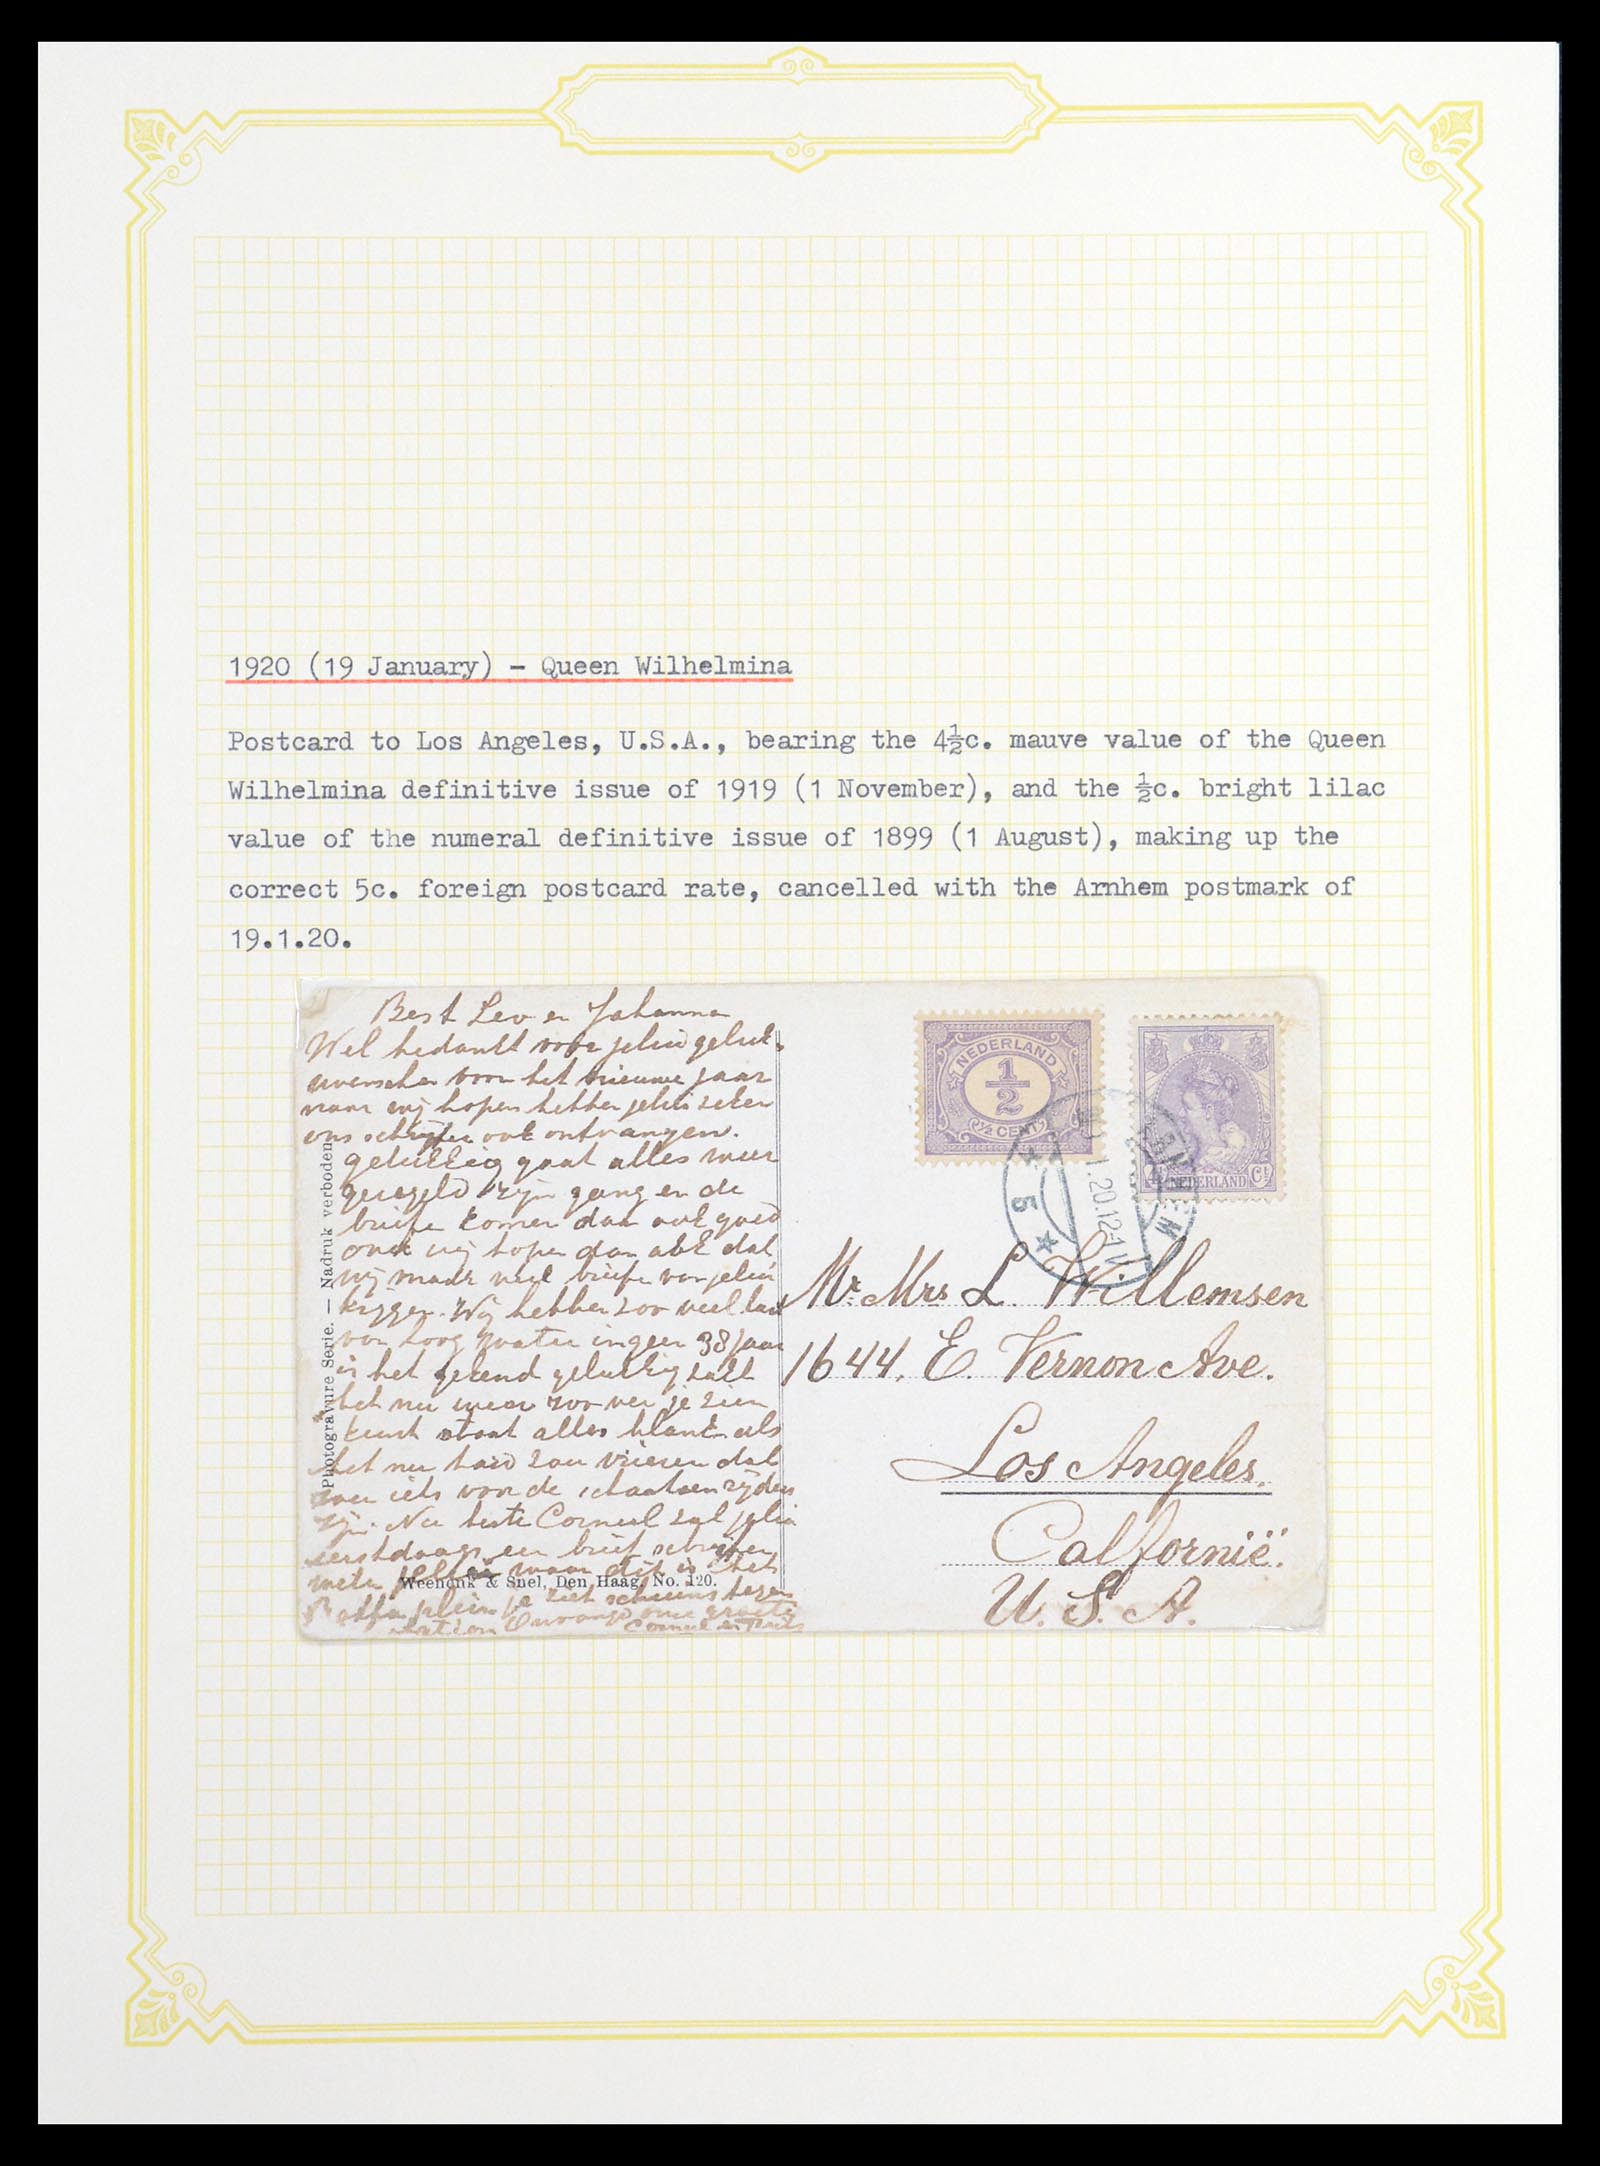 1920 (19 January) - Queen Wilhelmina
Postcard to Los Angeles, U.S.A., bearing the 4½c. mauve value of the Queen
Wilhelmina definitive issue of 1919 (1 November), and the ½c. bright lilac
value of the numeral definitive issue of 1899 (1 August), making up the
correct 5c. foreign postcard rate, cancelled with the Arnhem postmark of
19.1.20.
Best Leo en Johanna
Wel bedankt voor jelui geluk-
wenschen voor het nieuwe jaar
maar wij hopen hebben jelui zeker
ons schrijfen ook ontvangen.
gelukkig gaat alles weer
geregeld zijn gang en de
briefe komen dan ook goed
over wij hopen dan ook dat
wij maar veel briefe van jelui
krijgen. Wij hebben zoo veel last
van hoog water in geen 38 jaar
is het gekend gelukkig zakt
het nu weer zoo ver je zien
kunt staat alles blank als
het nu hard zou vriezen dat
zou iets voor de schaatsenrijders
zijn. Nu beste Corneel zal jelui
eerstdaags een brief schrijven
maar dit is het
plein je ziet
onze groete
Corneel en
Photogravure Serie. — Nadruk verboden
Weenenk & Snel, Den Haag. No. 120.
NEDERLAND
½
½ CENT
NEDERLAND
Ct
1.20.12-1V
5
Mr. Mrs L. Willemsen
1644. E. Vernon Ave.
Los Angeles.
Californië.
U. S. A.